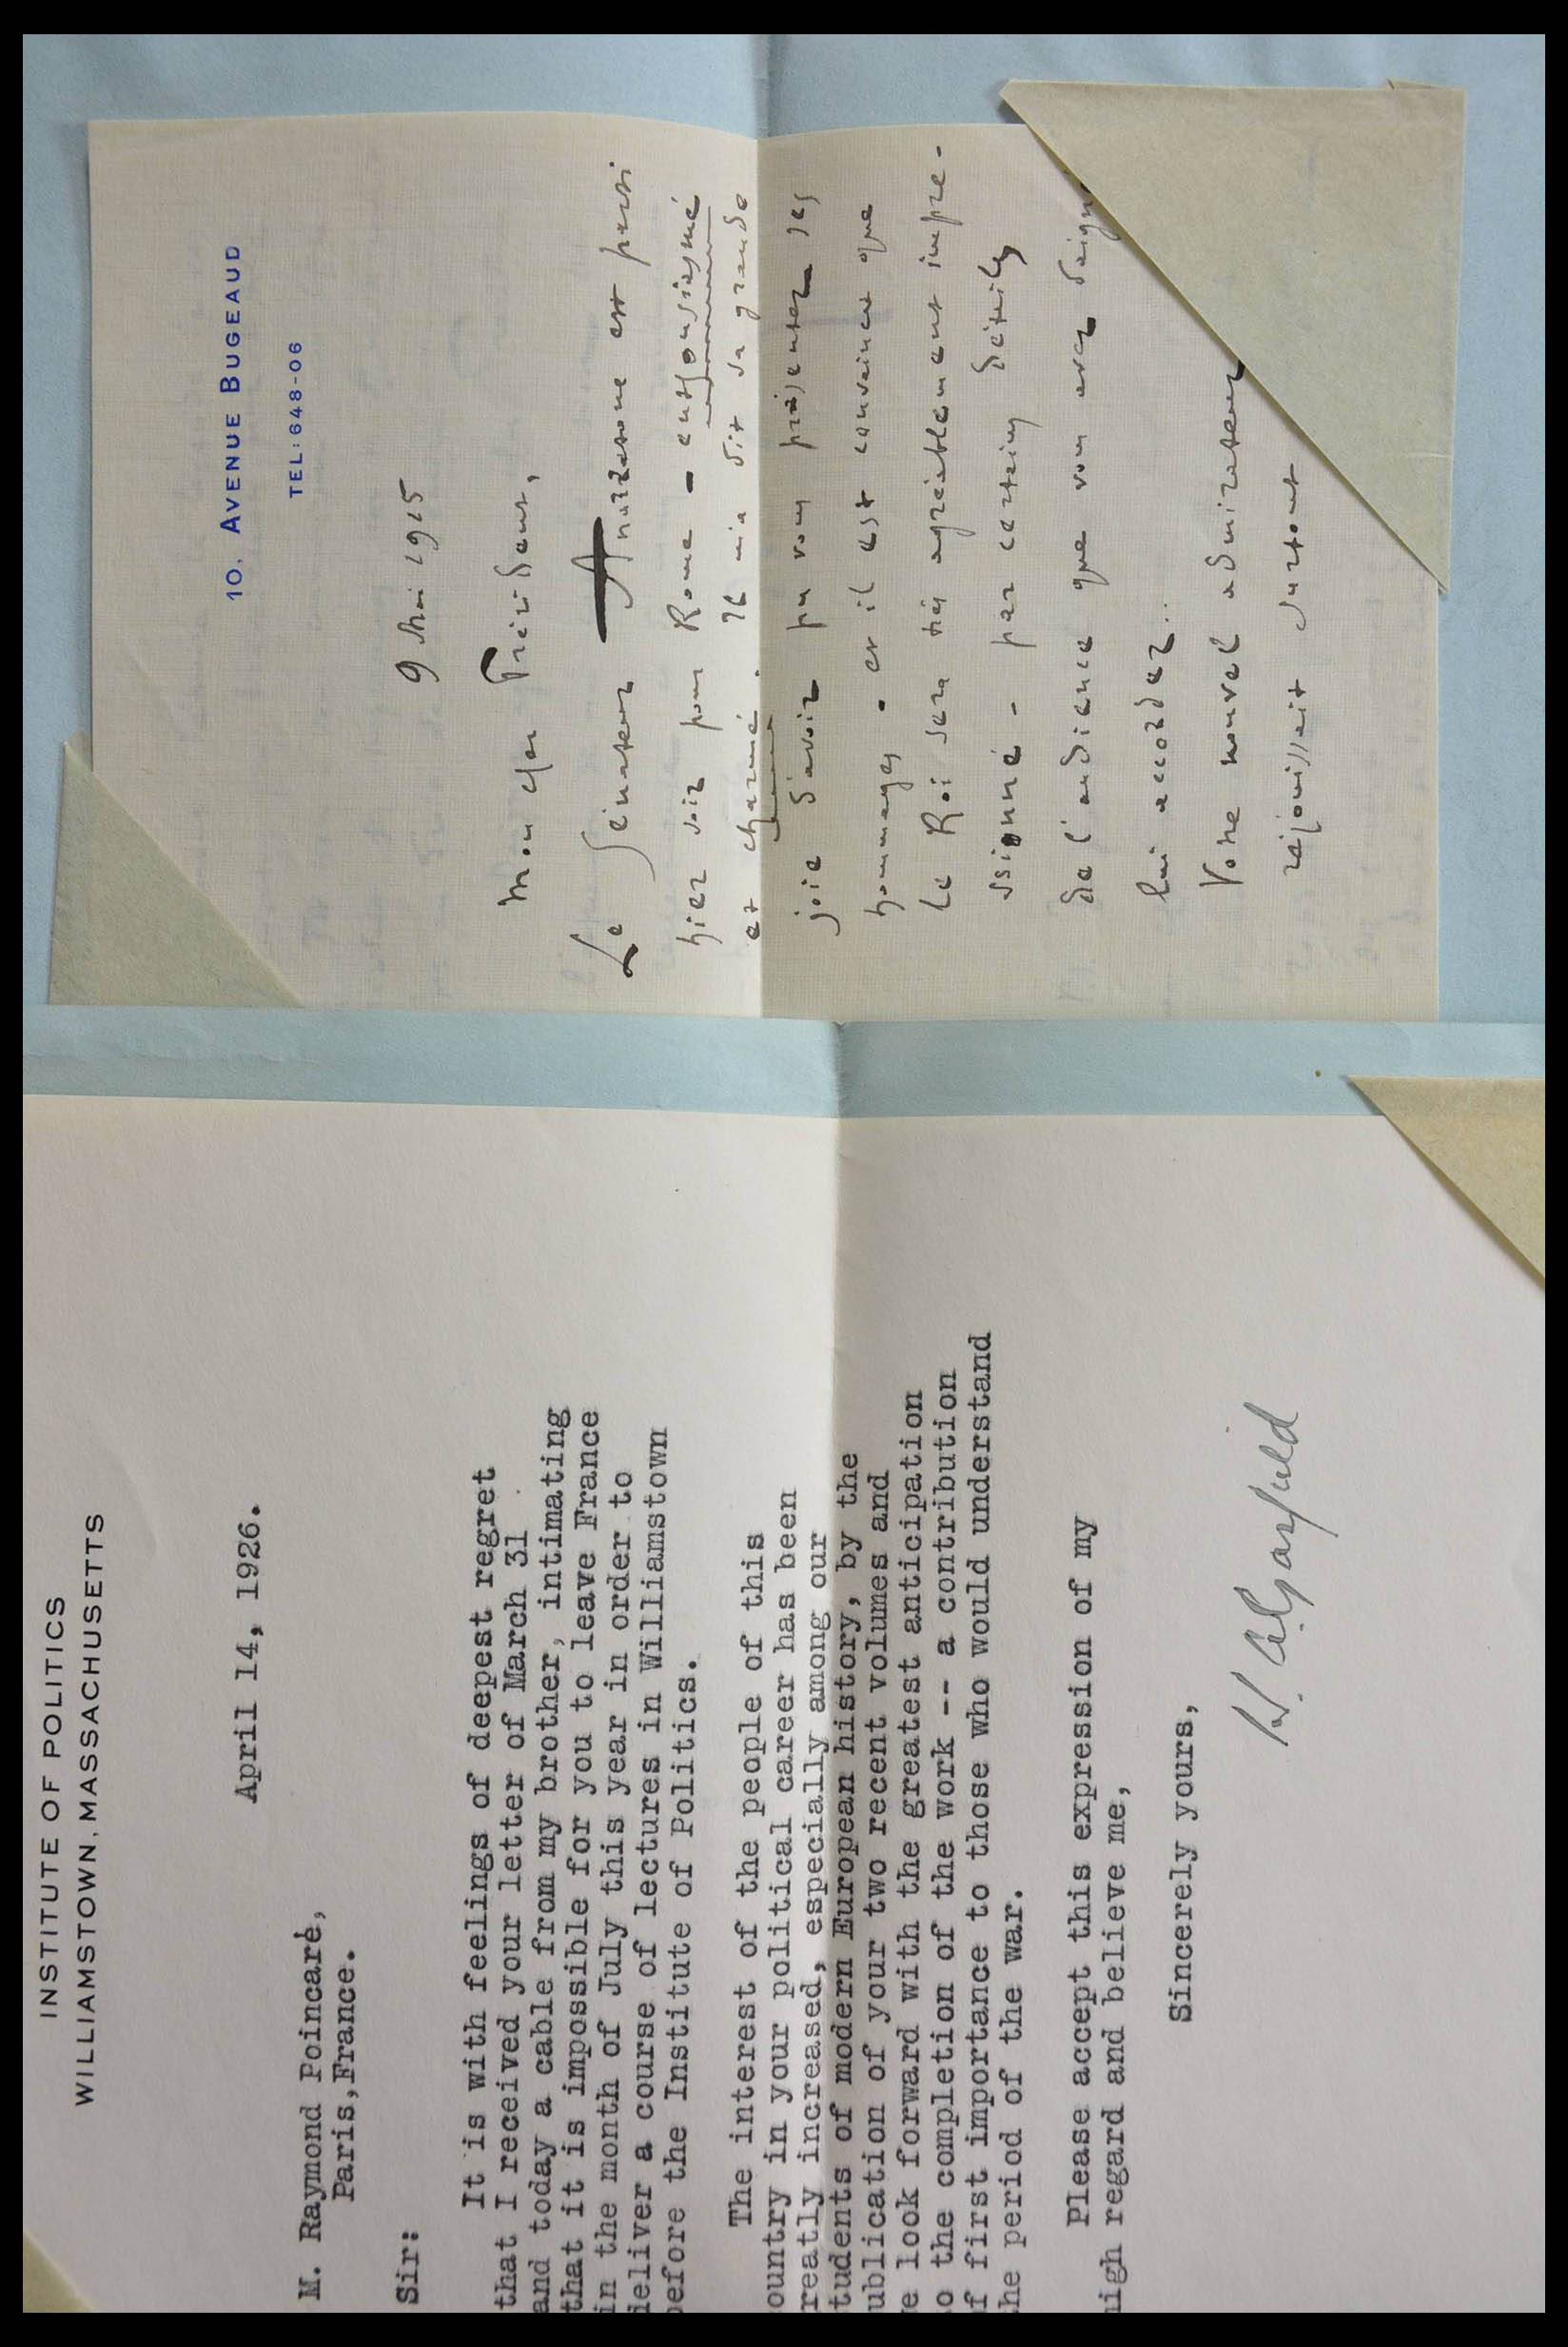 10, AVENUE BUGEAUD
TEL: 648-06
9 Mai 1915
Mon cher Président,
Le Sénateur Annaratone est parti
hier soir pour Rome - enthousiasmé
et charmé. Il m'a dit sa grande
joie d'avoir pu vous présenter ses
hommages - et il est convaincu que
le Roi sera très agréablement impre-
ssionné - par certains détails
de l'audience que vous avez daigné
lui accorder...
Votre nouvel admirateur
réjouissait surtout
INSTITUTE OF POLITICS
WILLIAMSTOWN, MASSACHUSETTS
April 14, 1926.
M. Raymond Poincaré,
Paris, France.
Sir:
It is with feelings of deepest regret
that I received your letter of March 31
and today a cable from my brother, intimating
that it is impossible for you to leave France
in the month of July this year in order to
deliver a course of lectures in Williamstown
before the Institute of Politics.
The interest of the people of this
ountry in your political career has been
reatly increased, especially among our
tudents of modern European history, by the
ublication of your two recent volumes and
e look forward with the greatest anticipation
o the completion of the work -- a contribution
f first importance to those who would understand
he period of the war.
Please accept this expression of my
high regard and believe me,
Sincerely yours,
H. A. Garfield